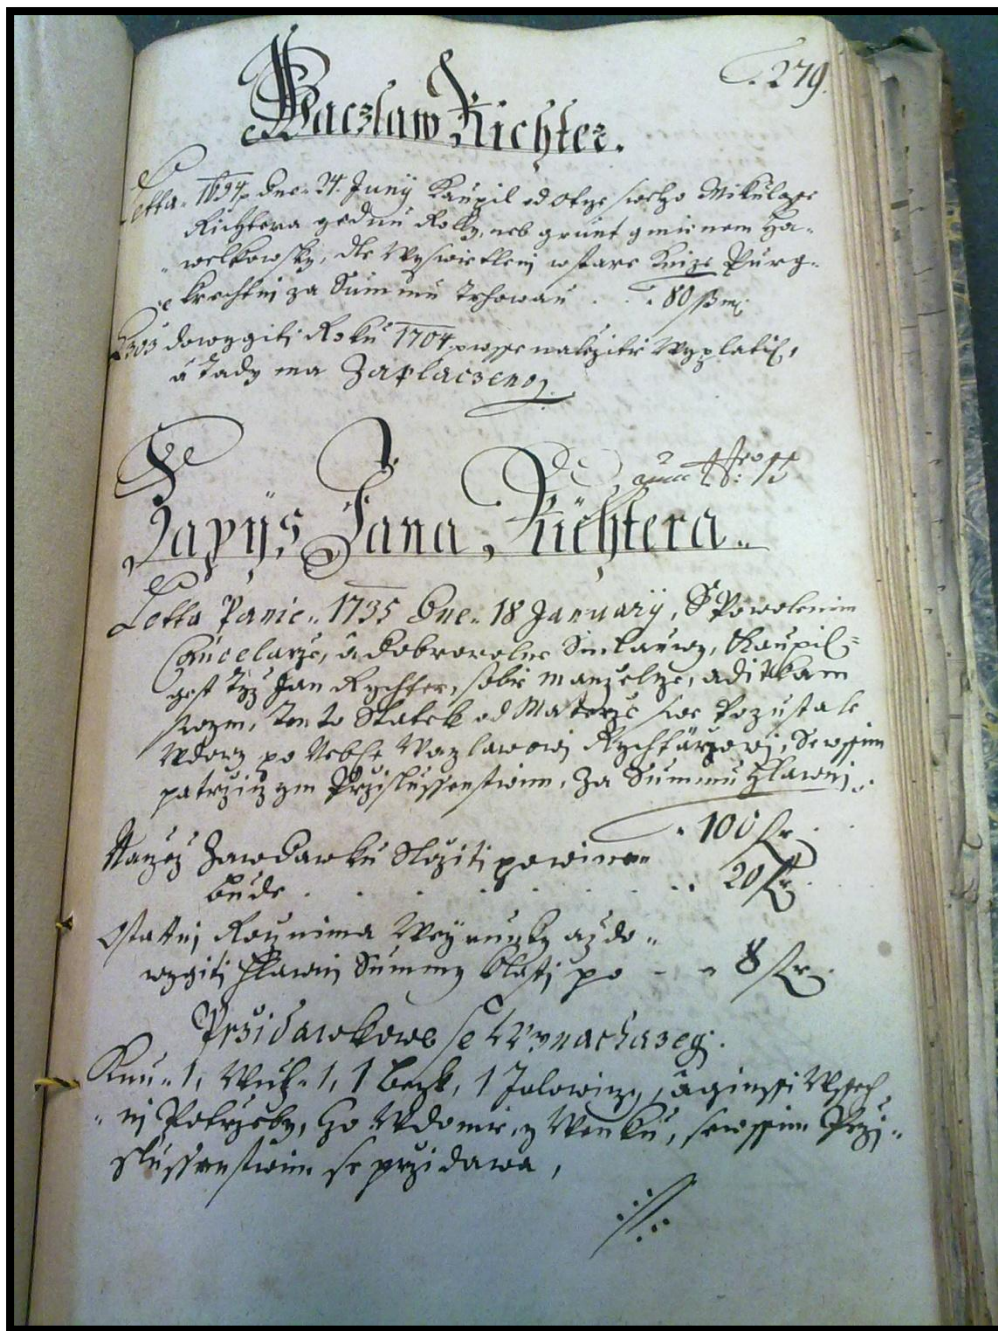 279.
Waczlaw Richter.
Letta 1694 dne 24. Juny Kaupil od Otcze sweho Mikulasse
Richtera gednu Rolly, neb grunt gmenem Ha-
welkowsky, dle Wyswietleni w stare Knize Purg-
krechtni za Summu Trhowau . . 80 ß m.
dowygiti Roku 1704 wsse nalezite Wyplatil,
a Tady ma Zaplaczeno.
Zapys Jana Richtera.
Letta Panie 1735 Dne 18 January, S Powolenim
Cancelarze, a dobrowolne Smlauwy, Kaupil
gest Tyz Jan Rychter, sobie manzelcze, a ditkam
swym, tento Statek od Materze swe Pozustale
Wdowy po Neb: Waczlawowi Rychtarzowi, Sewssim
patrziczym Przislussenstwim, Za Summu Hlawni
100
Nanez Zawdawku Sloziti powinen
bude . . . . . 20
Ostatni Rownima Weyrunky az do
wygiti Hlawni Summy Klasti po - 8
Przidawkowe se Wynachazegi.
Kun 1, Wuz 1, 1 , 1 Jalowicze, a ginssi Wssech-
ni Potrzeby, Co Wdomie, y Wenku, sewssim Przi-
slussenstwim se przidawa,